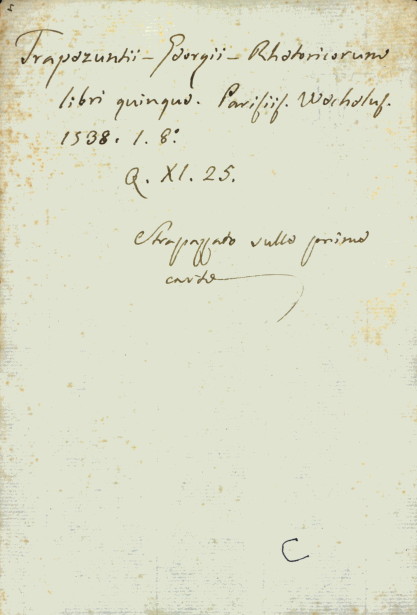 Trapezuntii - Georgii - Rhetoricorum
libri quinque. Parisiis. Wechelus.
1538. 1. 8°.
Q. XI. 25.
Strapazzato nelle prime
carte
C